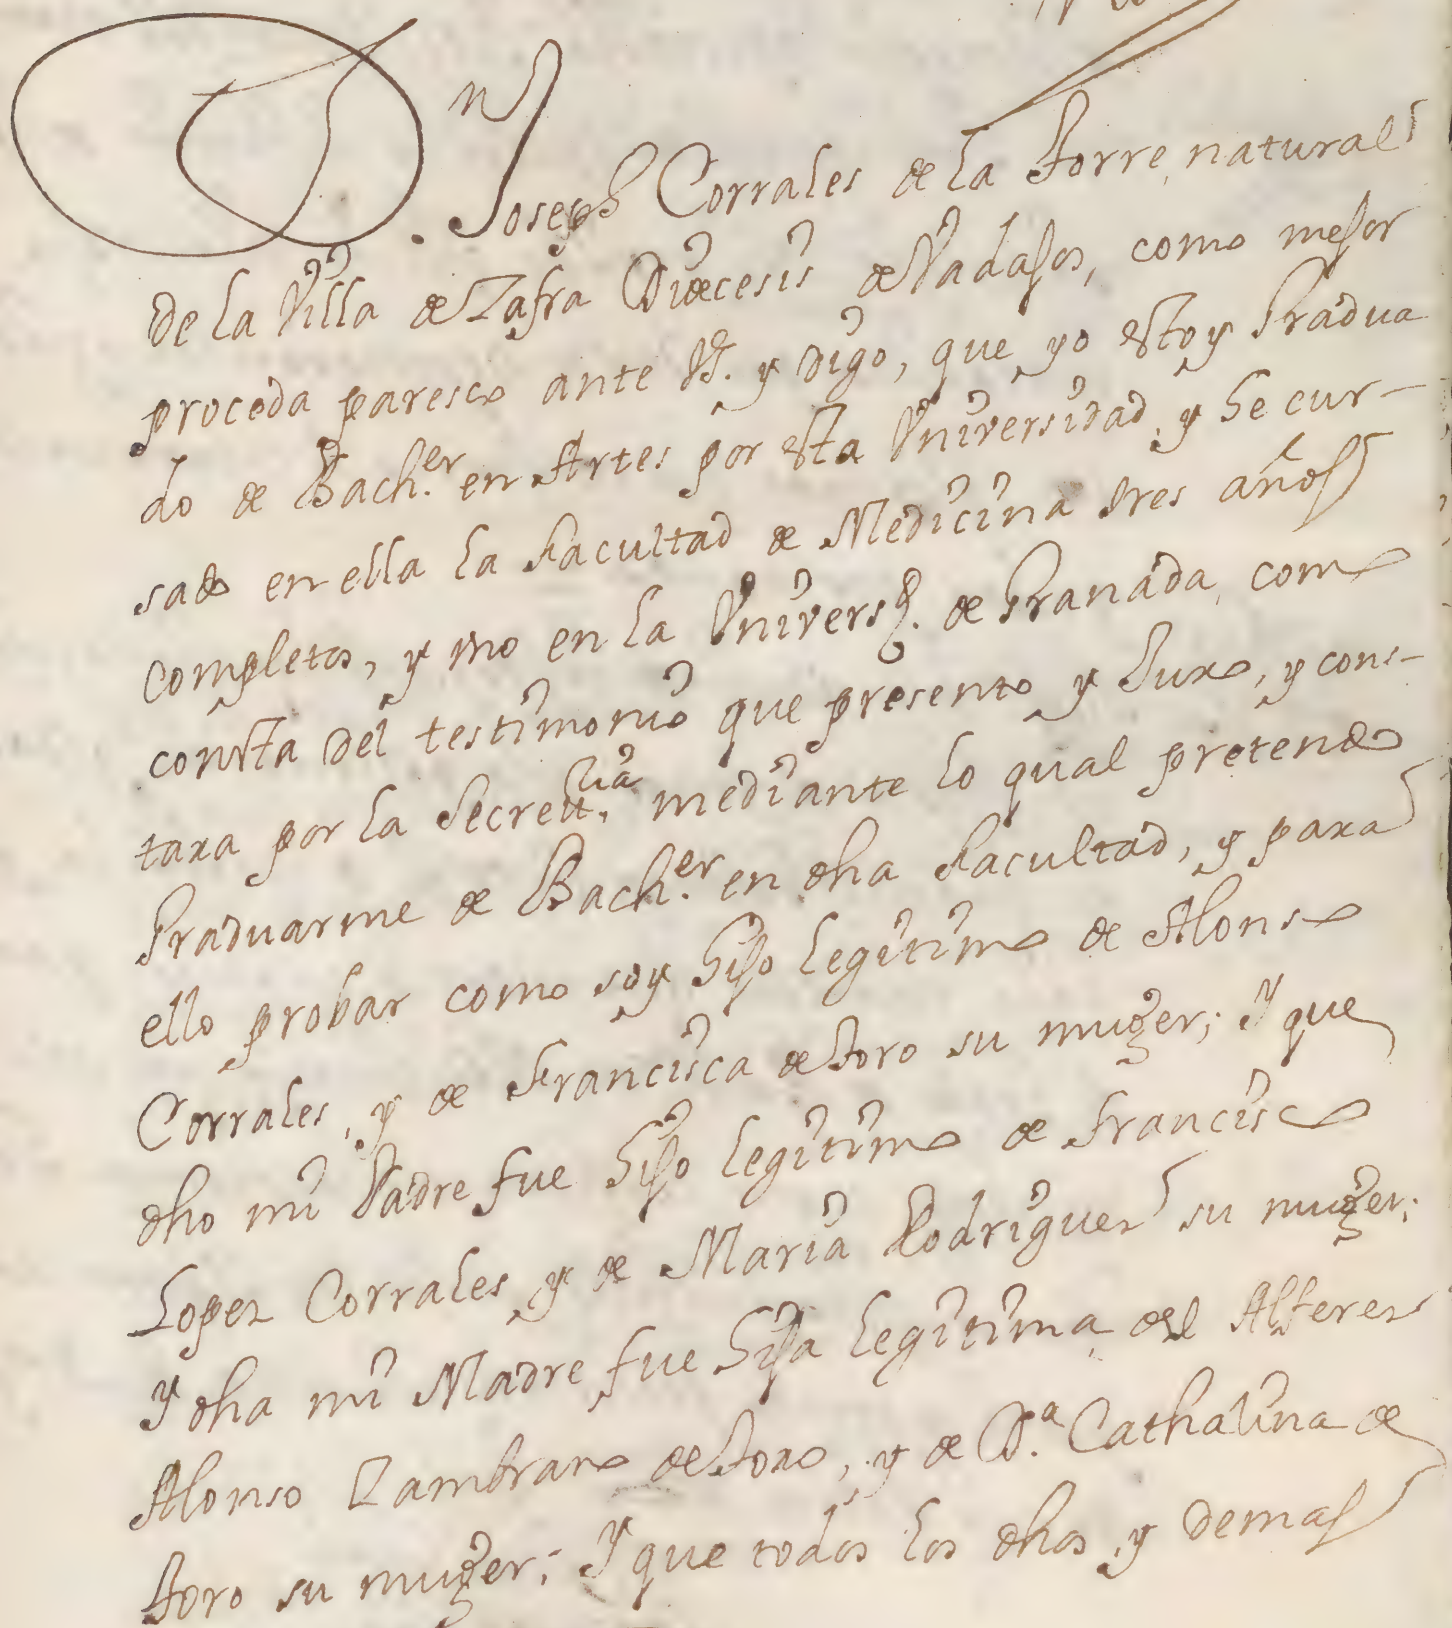 Dn. Joseph Corrales de la Torre, natural
de la Villa de Zafra Diœcesis de Vadajos, como mejor
proceda paresco ante V.S. y digo, que yo estoy Gradua
do de Bach.er en Artes por esta Vniversidad, y he cur-
sado en ella la Facultad de Medicina tres años
completos, y vno en la Vniversd. de Granada, como
consta del testimonio que presento y Juro, y cons-
tara por la Secret.ria, mediante lo qual pretendo
Graduarme de Bach.er en dha Facultad, y para
ello probar como soy hijo legitimo de Alonso
Corrales, y de Francisca de Toro su muger; Y que
dho mi Padre fue hijo legitimo de Francisco
Lopez Corrales, y de Maria Rodriguez su muger;
Y dha mi Madre fue hija legitima del Alferez
Alonso Zambrano de Toro, y de D.a Cathalina de
Toro su muger; Y que todos los dhos, y demas